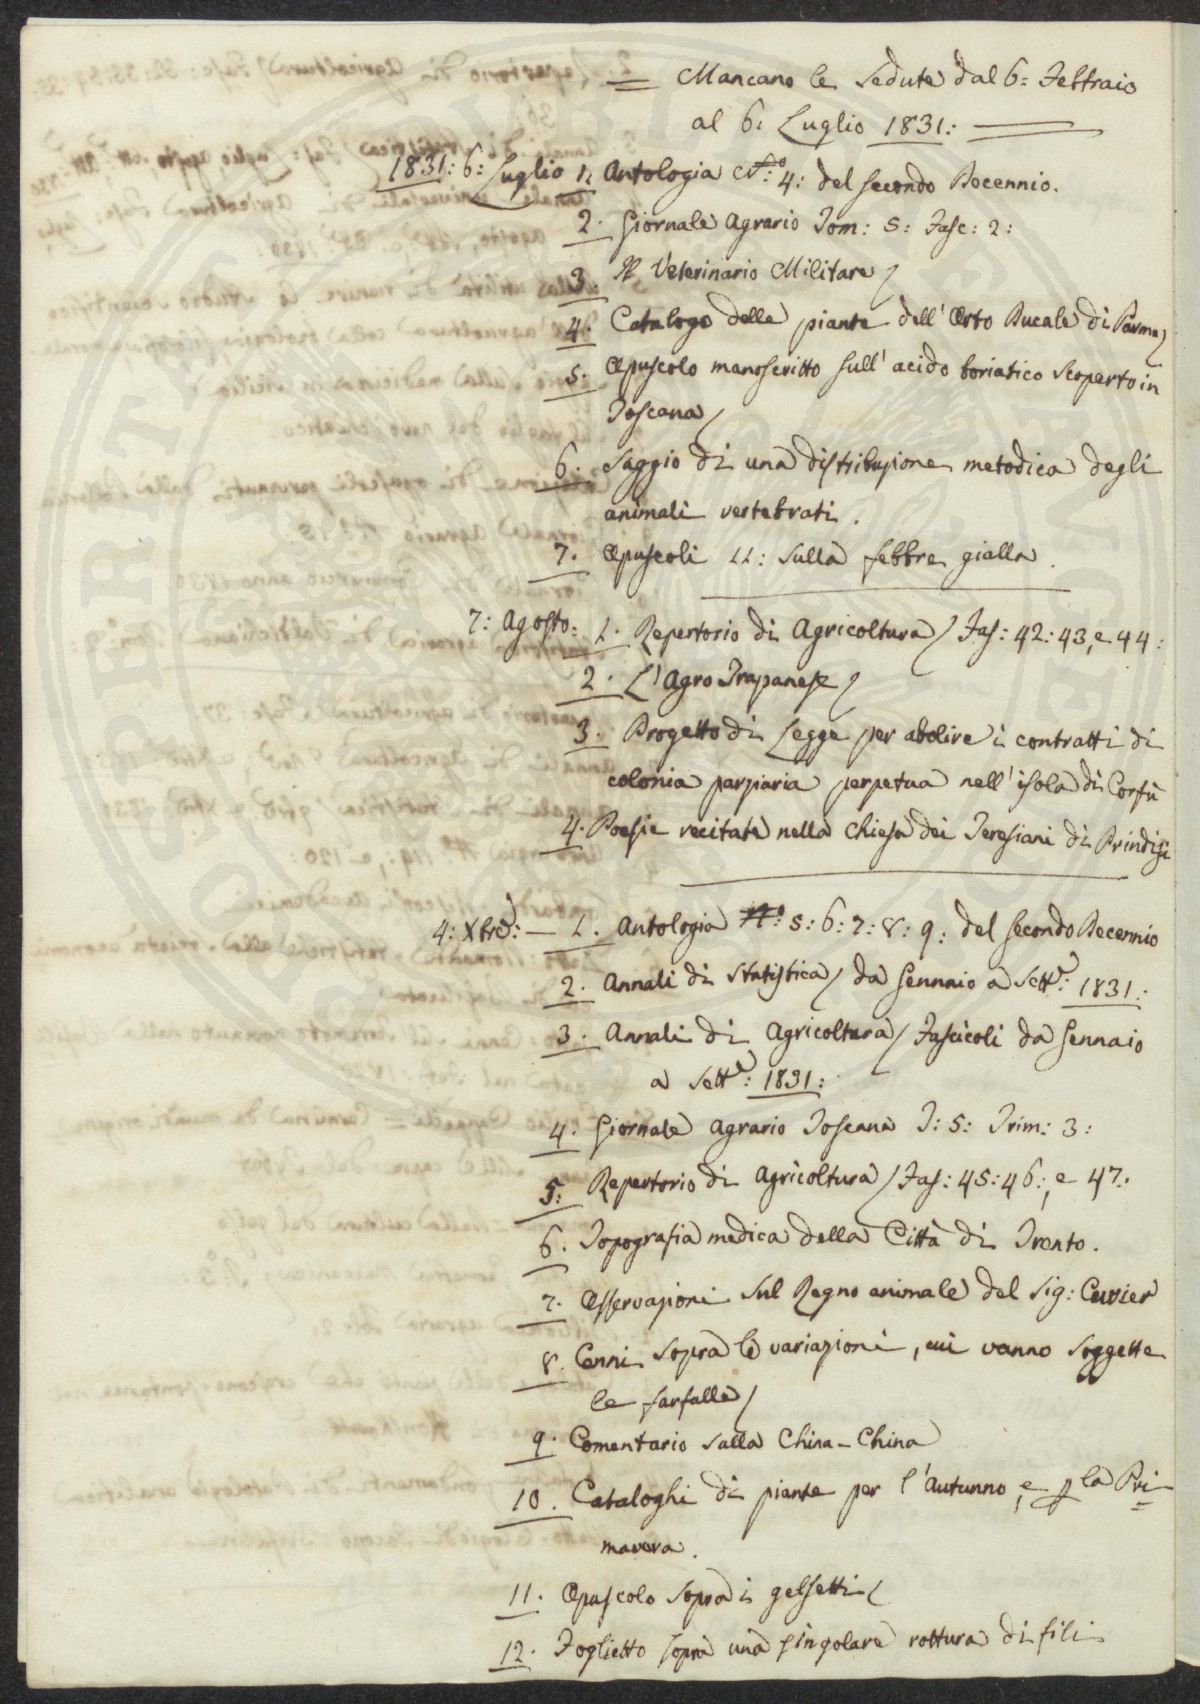 = Mancano le Sedute dal 6: Febbraio
al 6: Luglio 1831:
1831: 6: Luglio 1. Antologia N.° 4: del secondo Decennio.
2. Giornale Agrario Tom: 5: Fasc: 2:
3. Il Veterinario Militare
4. Catalogo delle piante dell' Orto Ducale di Parma
5. Opuscolo manoscritto sull' acido boriatico scoperto in
Toscana
6. Saggio di una distribuzione metodica degli
animali vertebrati.
7. Opuscoli 11: sulla febbre gialla.
7: Agosto: 1. Repertorio di Agricoltura Fas: 42: 43, e 44:
2. L'Agro Trapanese
3. Progetto di Legge per abolire i contratti di
colonia parziaria perpetua nell' isola di Corfù
4. Poesie recitate nella chiesa dei Teresiani di Brindisi
4: Xbre: — 1. Antologia N.° 5: 6: 7: 8: 9: del secondo Decennio
2. Annali di Statistica da Gennaio a Sett.e: 1831:
3. Annali di Agricoltura Fascicoli da Gennaio
a Sett.e: 1831:
4. Giornale Agrario Toscana T: 5: Trim: 3:
5: Repertorio di Agricoltura Fas: 45: 46:, e 47.
6. Topografia medica della Città di Trento.
7. Osservazioni sul Regno animale del Sig: Cuvier
8. Cenni sopra le variazioni, cui vanno soggette
le farfalle
9. Comentario sulla China-China
10. Cataloghi di piante per l'Autunno, e p la Pri=
mavera.
11. Opuscolo sopra i gelsetti
12. Foglietto sopra una singolare rottura di fili